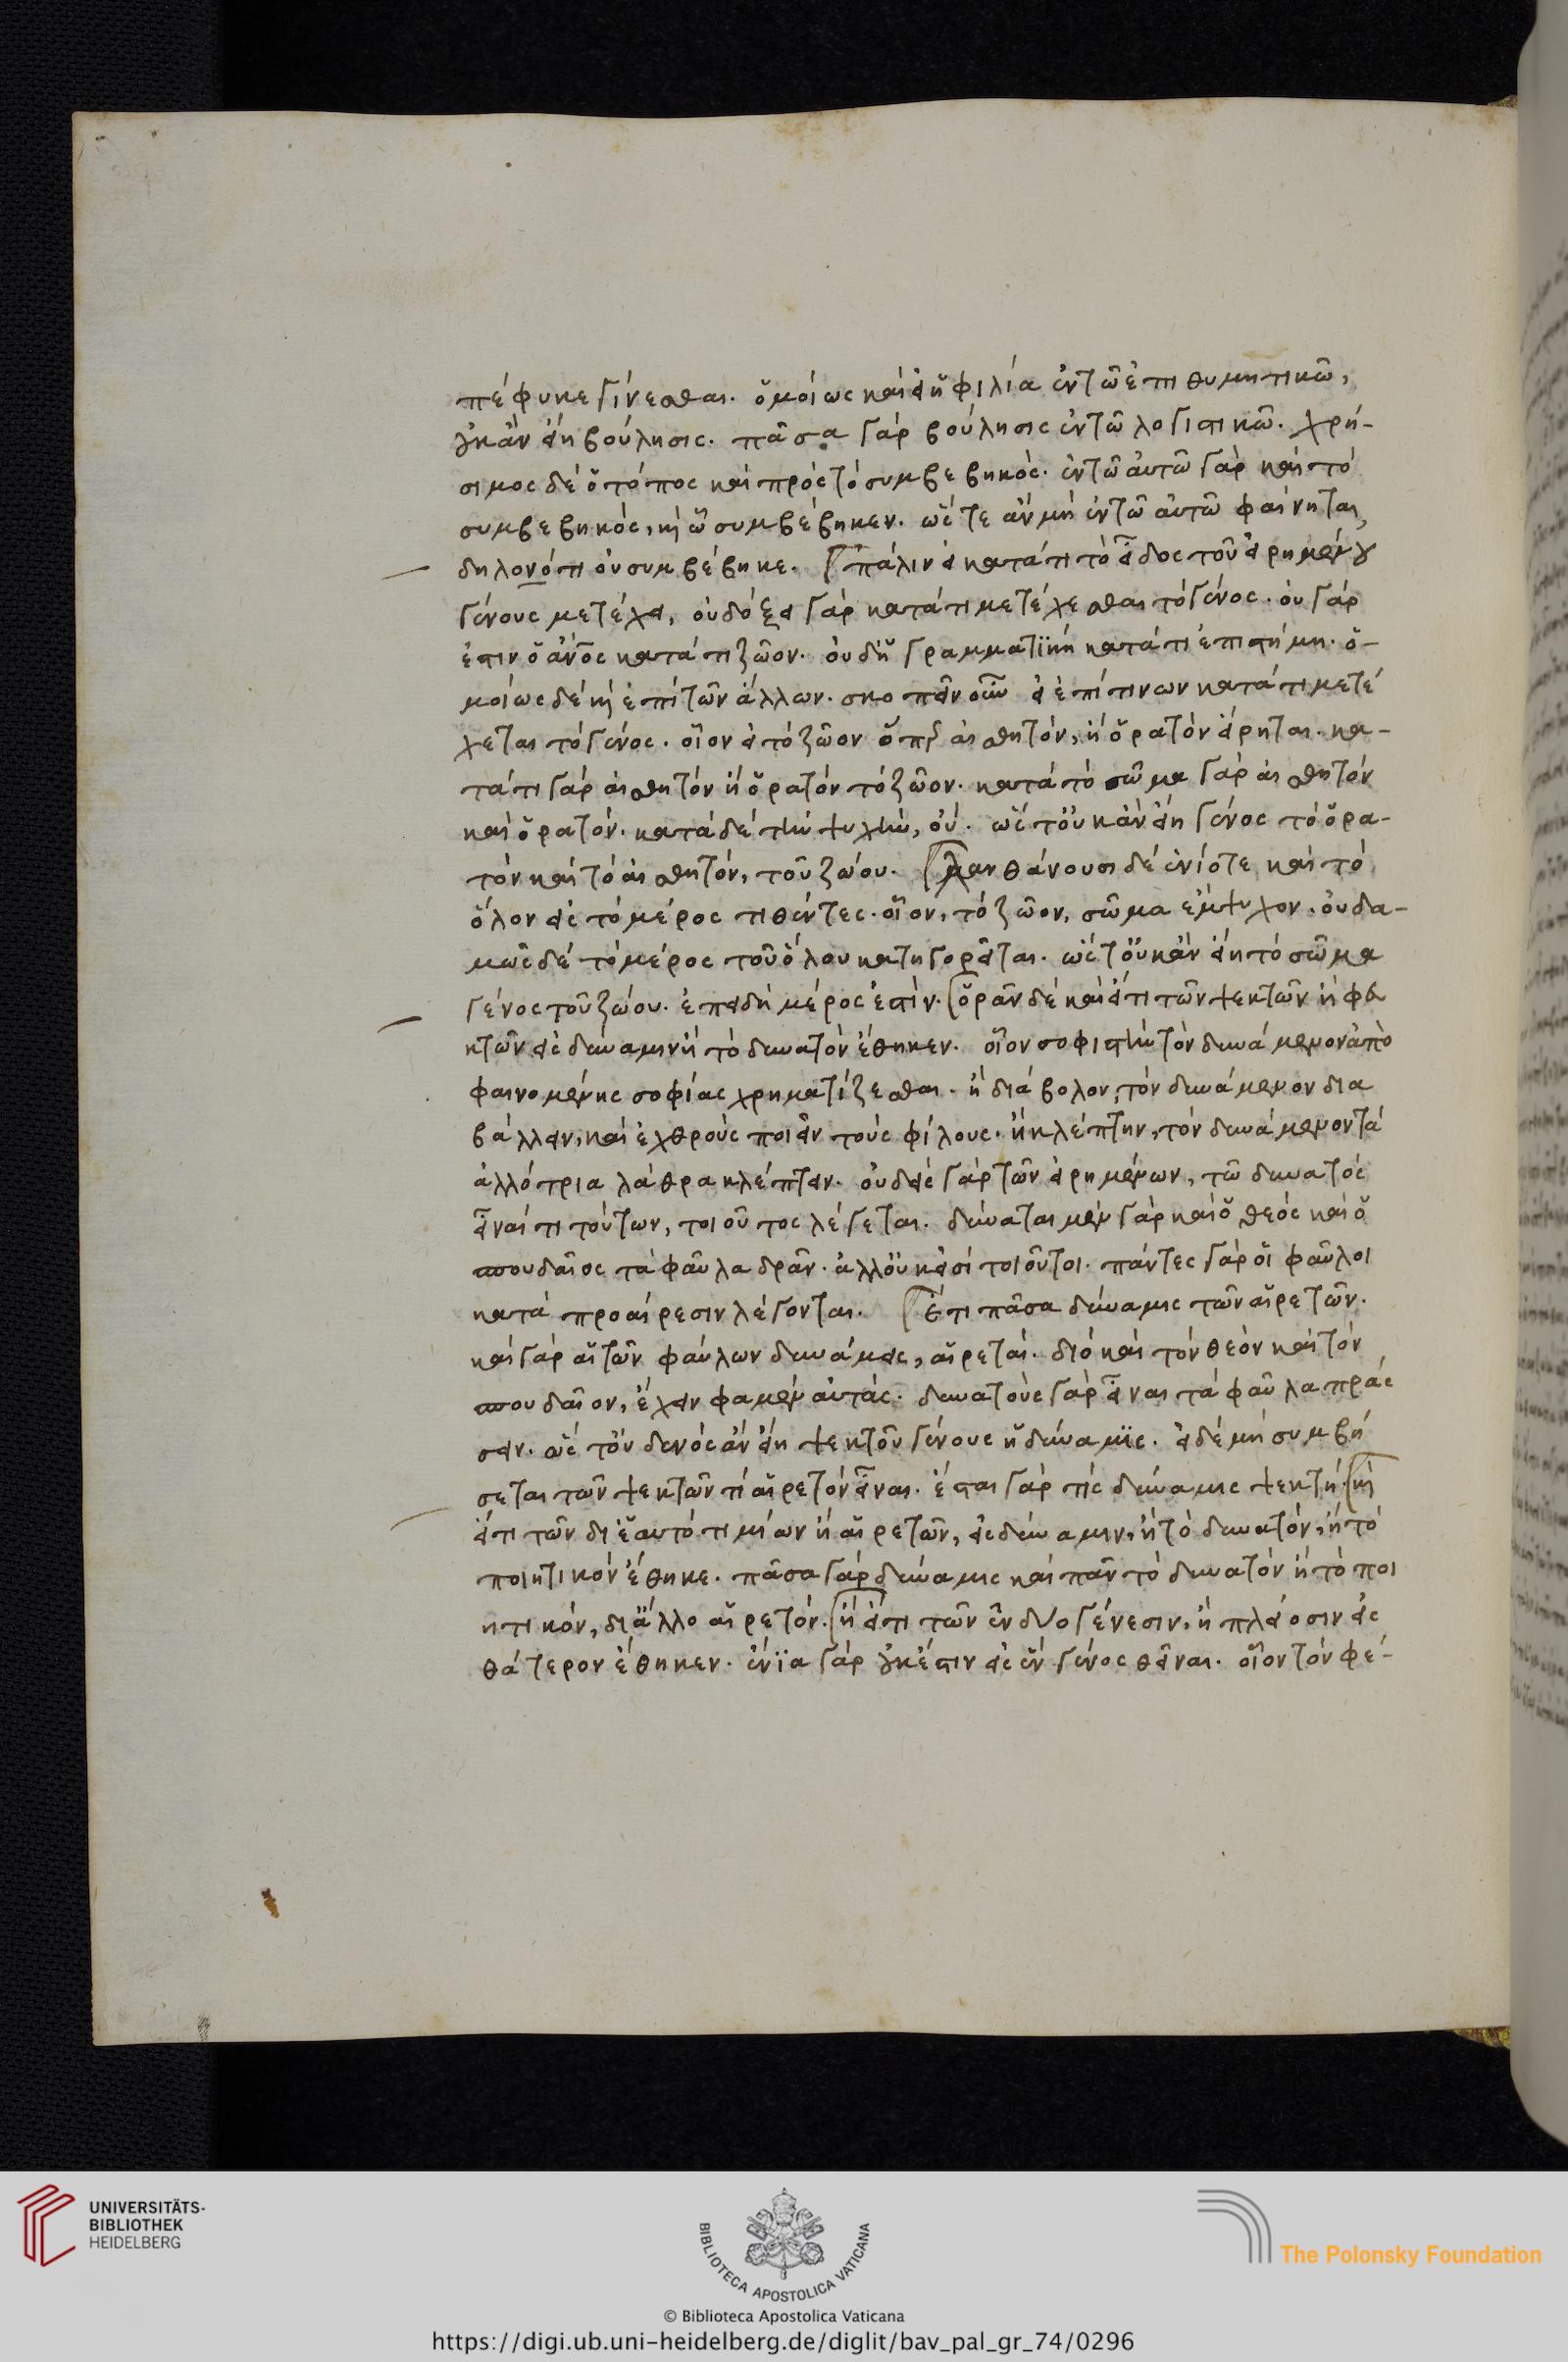 πέφυκε γίνεσθαι. ὁμοίως καὶ εἰ ἡ φιλία ἐν τῶ ἐπιθυμητικῶ,
οὐκ ἂν εἴη βούλησις. πᾶσα γὰρ βούλησις ἐν τῶ λογιστικῶ. χρή-
σιμος δὲ ὁ τόπος καὶ πρὸς τὸ συμβεβηκός. ἐν τῶ αὐτῶ γὰρ καὶ τὸ
συμβεβηκός, κὶ ὧ συμβέβηκεν. ὥστε ἂν μὴ ἐν τῶ αὐτῶ φαίνηται,
δηλονότι οὐ συμβέβηκε. πάλιν εἰ κατά τι τὸ εἶδος τοῦ εἰρημένου
γένους μετέχει, οὐ δόξει γὰρ κατά τι μετέχεσθαι τὸ γένος. οὐ γάρ
ἐστιν ὁ ἄνος κατά τι ζῶον. οὐδ ἡ γραμματϊκὴ κατά τι ἐπιστήμη. ὁ-
μοίως δὲ κὶ ἐπὶ τῶν ἄλλων. σκοπεῖν οὖν εἰ ἐπί τινων κατά τι μετέ
χεται τὸ γένος. οἷον εἰ τὸ ζῶον ὅπερ αἰσθητόν, ἢ ὁρατὸν εἴρηται. κα-
τά τι γὰρ αἰσθητὸν ἢ ὁρατὸν τὸ ζῶον. κατὰ τὸ σῶμα γὰρ αἰσθητὸν
καὶ ὁρατόν. κατὰ δὲ τὴν ψυχὴν, οὔ. ὥστ οὐκ ἂν εἴη γένος τὸ ὁρα-
τὸν καὶ τὸ αἰσθητόν, τοῦ ζώου. λανθάνουσι δὲ ἐνίοτε καὶ τὸ
ὅλον εἰς τὸ μέρος τιθέντες. οἷον, τὸ ζῶον, σῶμα ἔμψυχον. οὐδα-
μῶς δὲ τὸ μέρος τοῦ ὅλου κατηγορεῖται. ὥστ οὐκ ἂν εἴη τὸ σῶμα
γένος τοῦ ζώου. ἐπειδὴ μέρος ἐστίν. ὁρᾶν δὲ καὶ εἴ τι τῶν ψεκτῶν ἢ φευ
κτῶν εἰς δύναμιν ἢ τὸ δυνατὸν ἔθηκεν. οἷον σοφιστὴν τὸν δυνάμενον ἀπὸ
φαινομένης σοφίας χρηματίζεσθαι. ἢ διάβολον, τὸν δυνάμενον δια
βάλλειν, καὶ ἐχθροὺς ποιεῖν τοὺς φίλους. ἢ κλέπτην, τὸν δυνάμενον τὰ
ἀλλότρια λάθρα κλέπτειν. οὐδεὶς γὰρ τῶν εἰρημένων, τῶ δυνατὸς
εἶναί τι τούτων, τοιοῦτος λέγεται. δύναται μὲν γὰρ καὶ ὁ θεὸς καὶ ὁ
σπουδαῖος τὰ φαῦλα δρᾶν. ἀλλ οὐκ εἰσὶ τοιοῦτοι. πάντες γὰρ οἱ φαῦλοι
κατὰ προαίρεσιν λέγονται. Ἔτι πᾶσα δύναμις τῶν αἱρετῶν.
καὶ γὰρ αἱ τῶν φαύλων δυνάμεις, αἱρεταί. διὸ καὶ τὸν θεὸν καὶ τὸν
σπουδαῖον, ἔχειν φαμὲν αὐτάς. δυνατοὺς γὰρ εἶναι τὰ φαῦλα πράσ
σειν. ὥστ οὐδενὸς ἂν εἴη ψεκτοῦ γένους ἡ δύναμϊς. εἰ δὲ μὴ συμβή
σεται τῶν ψεκτῶν τὶ αἱρετὸν εἶναι. ἔσται γάρ τις δύναμις ψεκτή. κὶ
εἴ τι τῶν δι ἑαυτὸ τιμίων ἢ αἱρετῶν, εἰς δύναμιν, ἢ τὸ δυνατόν, ἢ τὸ
ποιητικὸν ἔθηκε. πᾶσα γὰρ δύναμις καὶ πᾶν τὸ δυνατὸν ἢ τὸ ποι
ητικόν, δι ἄλλο αἱρετόν. ἢ εἴ τι τῶν ἐν δύο γένεσιν, ἢ πλείοσιν εἰς
θάτερον ἔθηκεν. ἔνϊα γὰρ οὐκ ἔστιν εἰς ἓν γένος θεῖναι. οἷον τὸν φέ-
UNIVERSITÄTS-
BIBLIOTHEK
HEIDELBERG
BIBLIOTECA APOSTOLICA VATICANA
The Polonsky Foundation
© Biblioteca Apostolica Vaticana
https://digi.ub.uni-heidelberg.de/diglit/bav_pal_gr_74/0296